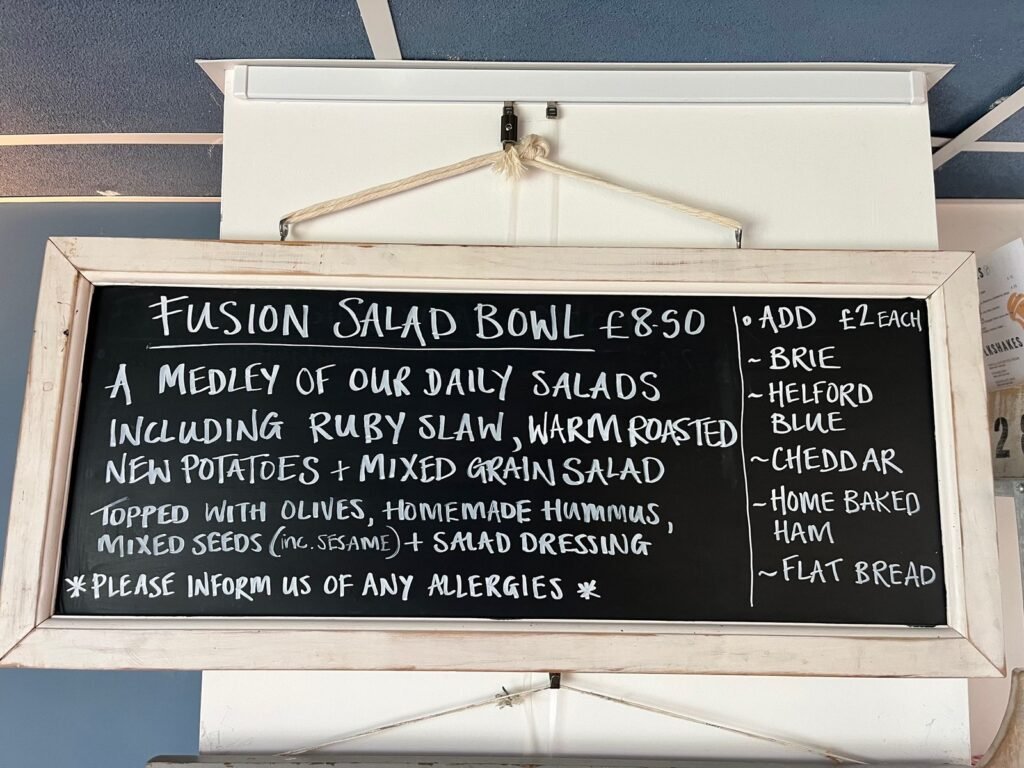 FUSION SALAD BOWL £8.50
A MEDLEY OF OUR DAILY SALADS
INCLUDING RUBY SLAW, WARM ROASTED
NEW POTATOES + MIXED GRAIN SALAD
TOPPED WITH OLIVES, HOMEMADE HUMMUS,
MIXED SEEDS (inc. SESAME) + SALAD DRESSING
*PLEASE INFORM US OF ANY ALLERGIES *
• ADD £2 EACH
~ BRIE
~ HELFORD
BLUE
~ CHEDDAR
~ HOME BAKED
HAM
~ FLAT BREAD